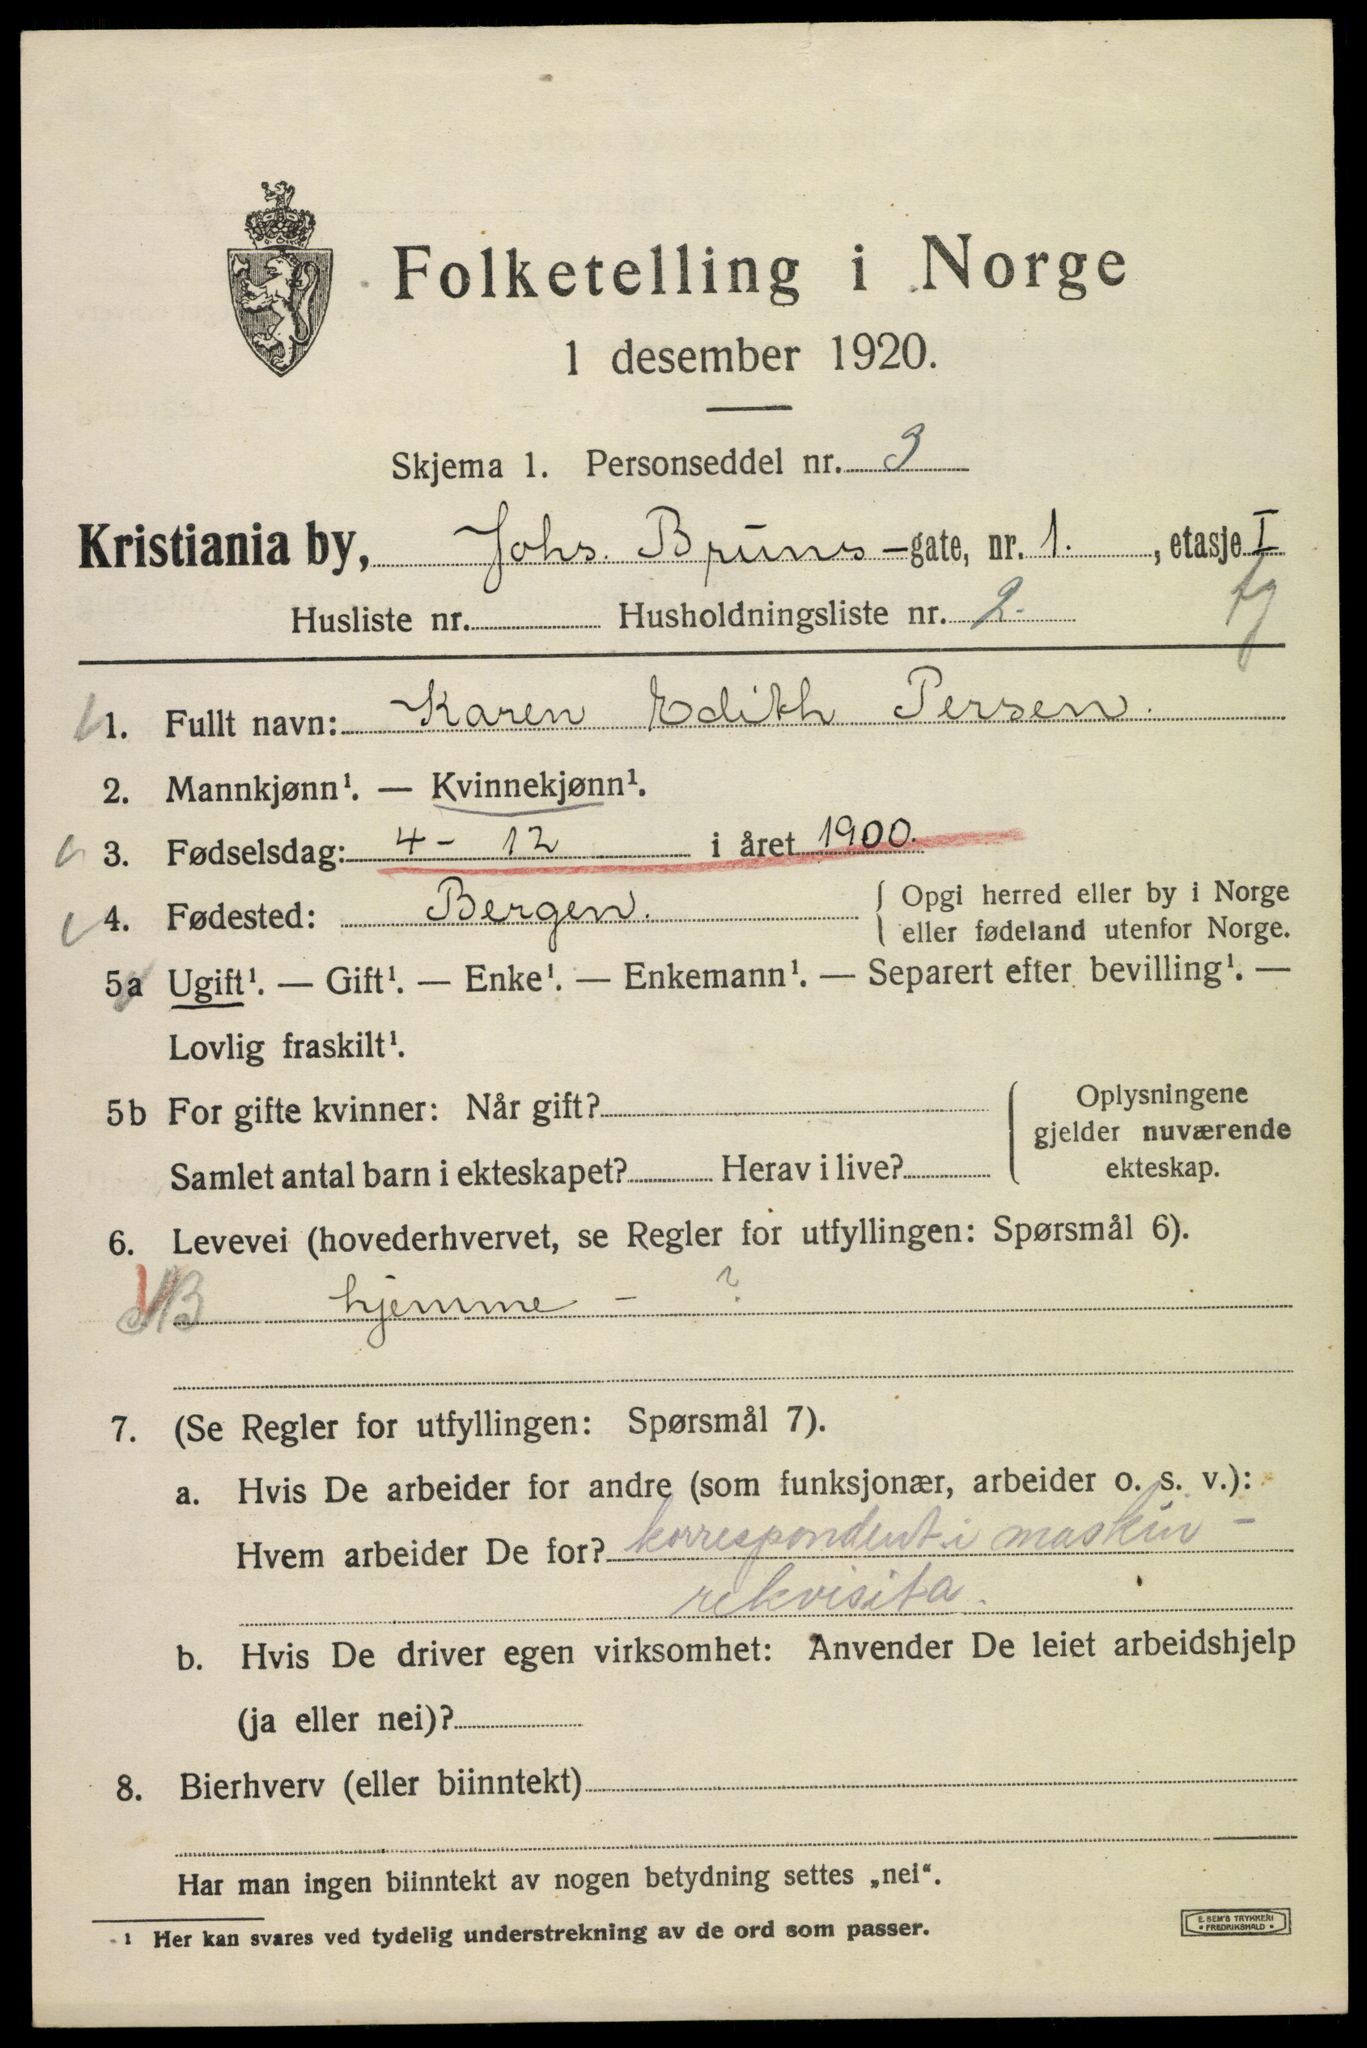 Folketelling i Norge
1 desember 1920.
Skjema 1. Personseddel nr. 3
Kristiania by, Johs. Bruns-gate, nr. 1. , etasje I
Husliste nr. Husholdningsliste nr. 2.
1. Fullt navn: Karen Edith Persen.
2. Mannkjønn¹. — Kvinnekjønn¹.
3. Fødselsdag: 4 - 12 i året 1900.
4. Fødested: Bergen. { Opgi herred eller by i Norge
eller fødeland utenfor Norge.
5a Ugift¹. — Gift¹. — Enke¹. — Enkemann¹. — Separert efter bevilling¹. —
Lovlig fraskilt¹.
5b For gifte kvinner: Når gift? Oplysningene
gjelder nuværende
Samlet antal barn i ekteskapet? Herav i live? ekteskap.
6. Levevei (hovederhvervet, se Regler for utfyllingen: Spørsmål 6).
hjemme - ?
7. (Se Regler for utfyllingen: Spørsmål 7).
a. Hvis De arbeider for andre (som funksjonær, arbeider o. s. v.):
Hvem arbeider De for? korrespondent i maskin-
rekvisita.
b. Hvis De driver egen virksomhet: Anvender De leiet arbeidshjelp
(ja eller nei)?
8. Bierhverv (eller biinntekt)
Har man ingen biinntekt av nogen betydning settes „nei“.
¹ Her kan svares ved tydelig understrekning av de ord som passer.
E. SEM'S TRYKKERI
FREDRIKSHALD